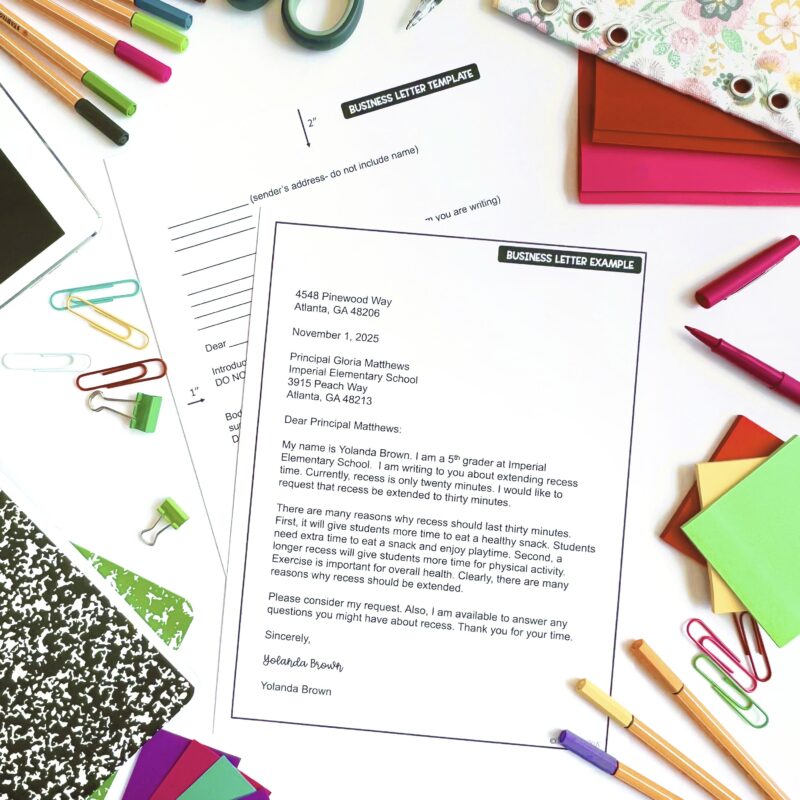 BUSINESS LETTER TEMPLATE
2"
(sender's address- do not include name)
you are writing)
Dear
Introduc
DO NO
1"
BUSINESS LETTER EXAMPLE
4548 Pinewood Way
Atlanta, GA 48206
November 1, 2025
Principal Gloria Matthews
Imperial Elementary School
3915 Peach Way
Atlanta, GA 48213
Dear Principal Matthews:
My name is Yolanda Brown. I am a 5th grader at Imperial
Elementary School. I am writing to you about extending recess
time. Currently, recess is only twenty minutes. I would like to
request that recess be extended to thirty minutes.
There are many reasons why recess should last thirty minutes.
First, it will give students more time to eat a healthy snack. Students
need extra time to eat a snack and enjoy playtime. Second, a
longer recess will give students more time for physical activity.
Exercise is important for overall health. Clearly, there are many
reasons why recess should be extended.
Please consider my request. Also, I am available to answer any
questions you might have about recess. Thank you for your time.
Sincerely,
Yolanda Brown
Yolanda Brown